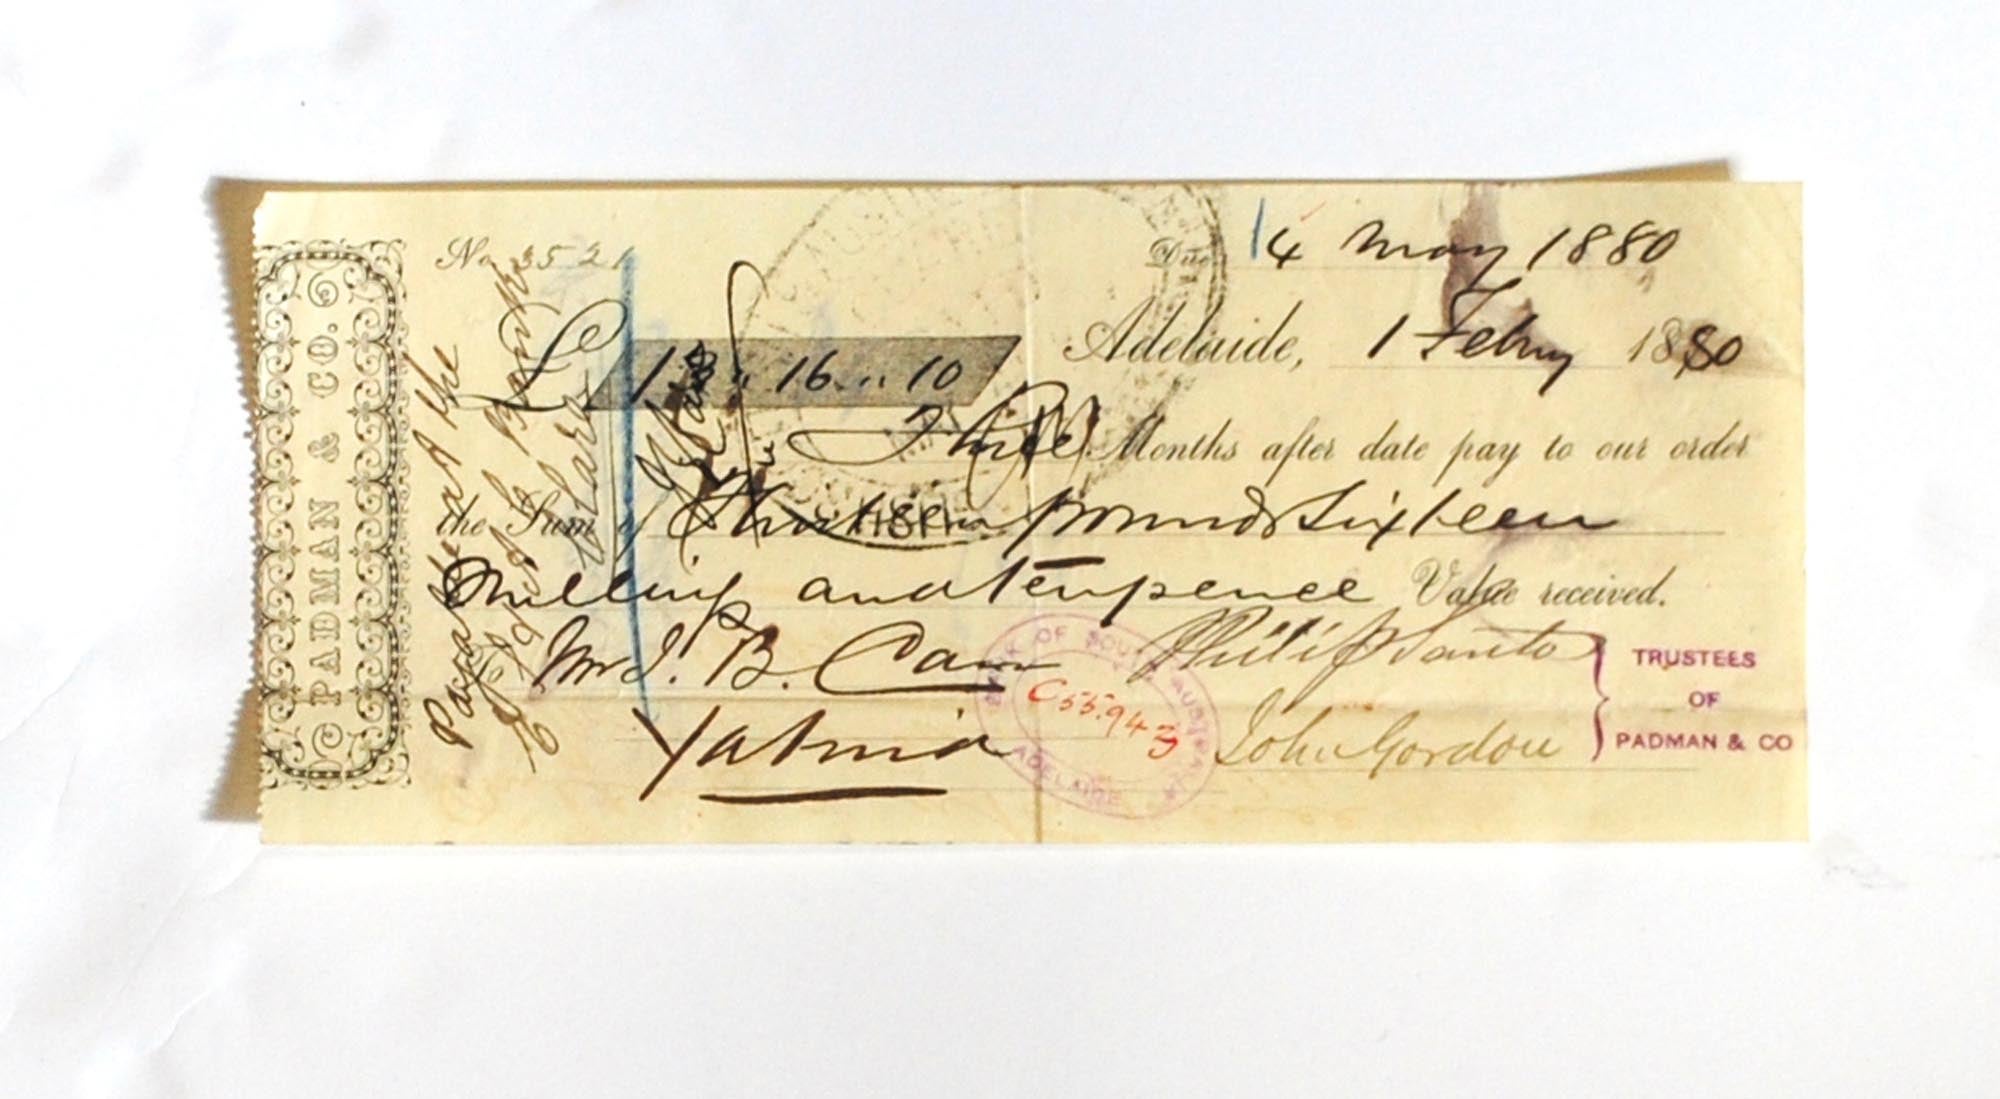 PADMAN & CO.
No. 3521
Due 14 May 1880
£ 13 " 16 " 10
Adelaide, 1 Febry 1880
Three Months after date pay to our order
the Sum of Thirteen pounds Sixteen
Shillings and tenpence Value received.
To Mr J. B. Carr
Yatina
Philip Santo
John Gordon
TRUSTEES
OF
PADMAN & CO
BANK OF SOUTH AUSTRALIA
ADELAIDE
C55.943
Payable at the
Bank
Clare
CASH